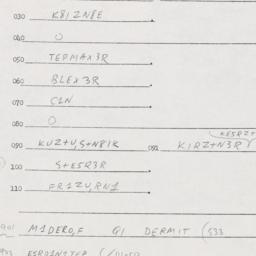 030 K8I2N8E
040 O
050 TEPMAX3R
060 BLEX3R
070 C1N
080 O
090 KUZ+U,S+N81K 091 K1RZ+N3R
100 S+ESR3R
110 FR1ZU,RN1
M1DERO,F G1 DERMIT (533